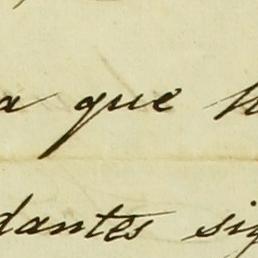 a que
dantes sig